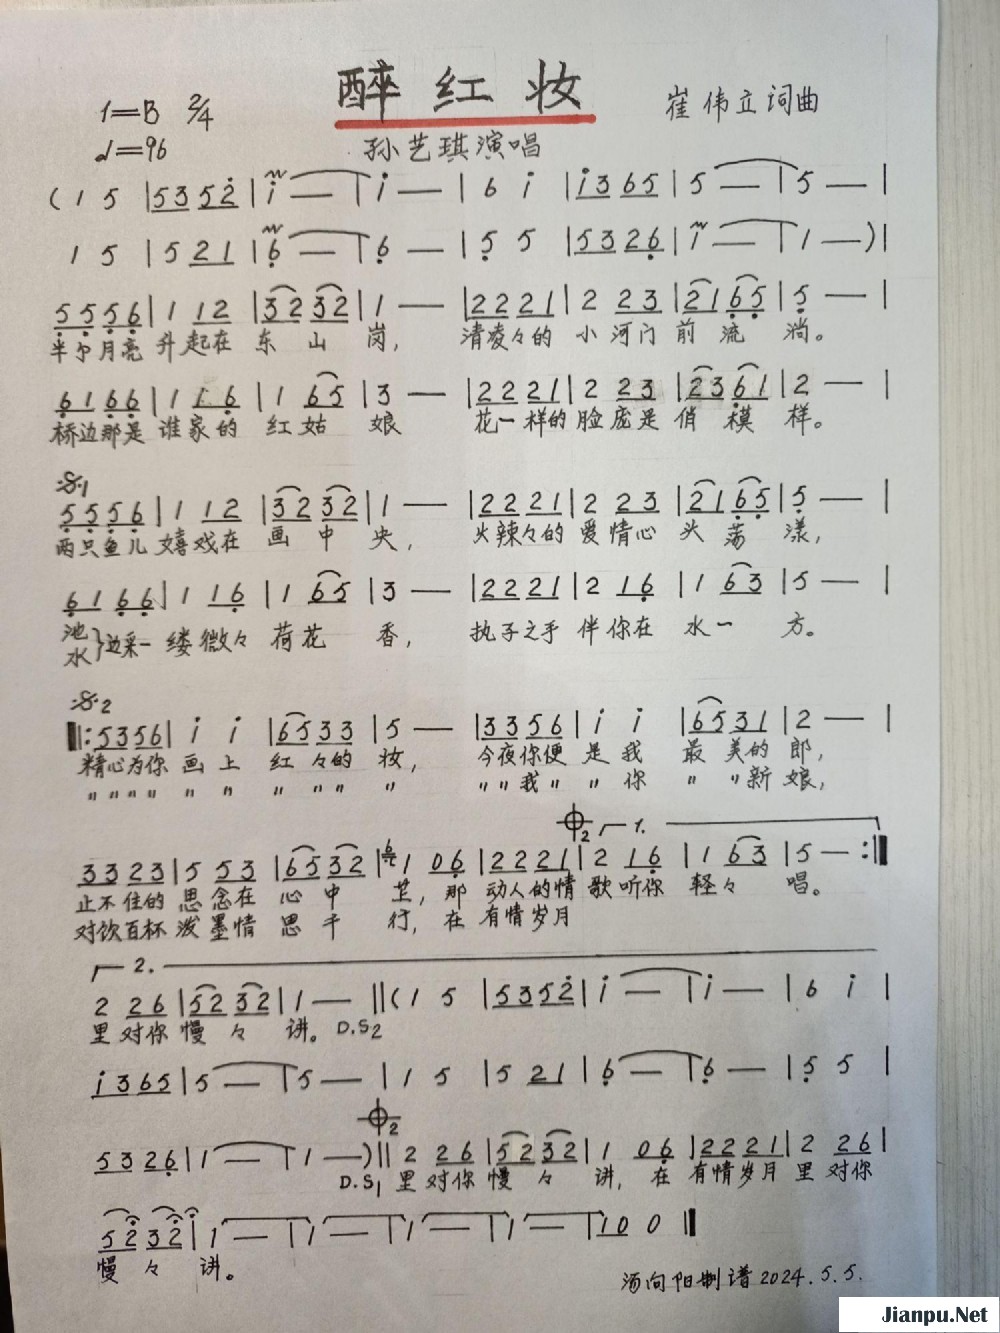 醉红妆
1=B 2/4
崔伟立词曲
♩=96
孙艺琪演唱
( 1 5 | 5 3 5 2̇ | i̇ — | i̇ — | 6 i̇ | i̇ 3 6 5 | 5 — | 5 — |
1 5 | 5 2 1 | 6̣ — | 6̣ — | 5̣ 5 | 5 3 2 6̣ | 1 — | 1 — ) |
5̣ 5̣ 5̣ 6̣ | 1 1 2 | 3 2 3 2 | 1 — | 2 2 2 1 | 2 2 3 | 2 1 6̣ 5̣ | 5̣ — |
半个月亮 升起在 东 山 岗, 清凌々的 小河门前 流 淌。
6̣ 1 6̣ 6̣ | 1 1 6̣ | 1 6 5 | 3 — | 2 2 2 1 | 2 2 3 | 2 3 6̣ 1 | 2 — |
桥边那是 谁家的 红姑 娘 花一样的 脸庞是 俏 模 样。
𝄋1
5̣ 5̣ 5̣ 6̣ | 1 1 2 | 3 2 3 2 | 1 — | 2 2 2 1 | 2 2 3 | 2 1 6̣ 5̣ | 5̣ — |
两只鱼儿 嬉戏在 画 中 央, 火辣々的 爱情心 头 荡 漾,
6̣ 1 6̣ 6̣ | 1 1 6̣ | 1 6 5 | 3 — | 2 2 2 1 | 2 1 6̣ | 1 6 3 | 5 — |
池
水 }边采一 缕微々 荷花 香, 执子之手 伴你在 水一 方。
𝄋2
‖: 5 3 5 6 | i̇ i̇ | 6 5 3 3 | 5 — | 3 3 5 6 | i̇ i̇ | 6 5 3 1 | 2 — |
精心为你 画上 红々的 妆, 今夜你便 是我 最 美的 郎,
〃〃〃〃 〃 〃 〃 〃〃 〃 〃〃我〃 〃你 〃 〃新 娘,
𝄌2 1.
3 3 2 3 | 5 5 3 | 6 5 3 2 | 1 0 6̣ | 2 2 2 1 | 2 1 6̣ | 1 6 3 | 5 — :‖
止不住的 思念在 心 中 芒, 那 动人的情 歌听你 轻々 唱。
对饮百杯 泼墨情 思 千 行, 在 有情岁月
2.
2 2 6 | 5 2 3 2 | 1 — ‖ ( 1 5 | 5 3 5 2̇ | i̇ — | i̇ — | 6 i̇ |
里对你 慢 々 讲。 D.S2
i̇ 3 6 5 | 5 — | 5 — | 1 5 | 5 2 1 | 6̣ — | 6̣ — | 5̣ 5 |
𝄌2
5 3 2 6̣ | 1 — | 1 — ) ‖ 2 2 6 | 5 2 3 2 | 1 0 6̣ | 2 2 2 1 | 2 2 6 |
D.S1 里对你 慢 々 讲, 在 有情岁月 里对你
5 2̇ 3 2̇ | i̇ | 1 — | 1 — | 1 — | 1 — | 1 0 0 ‖
慢 々 讲。
汤向阳制谱2024.5.5.
Jianpu.Net